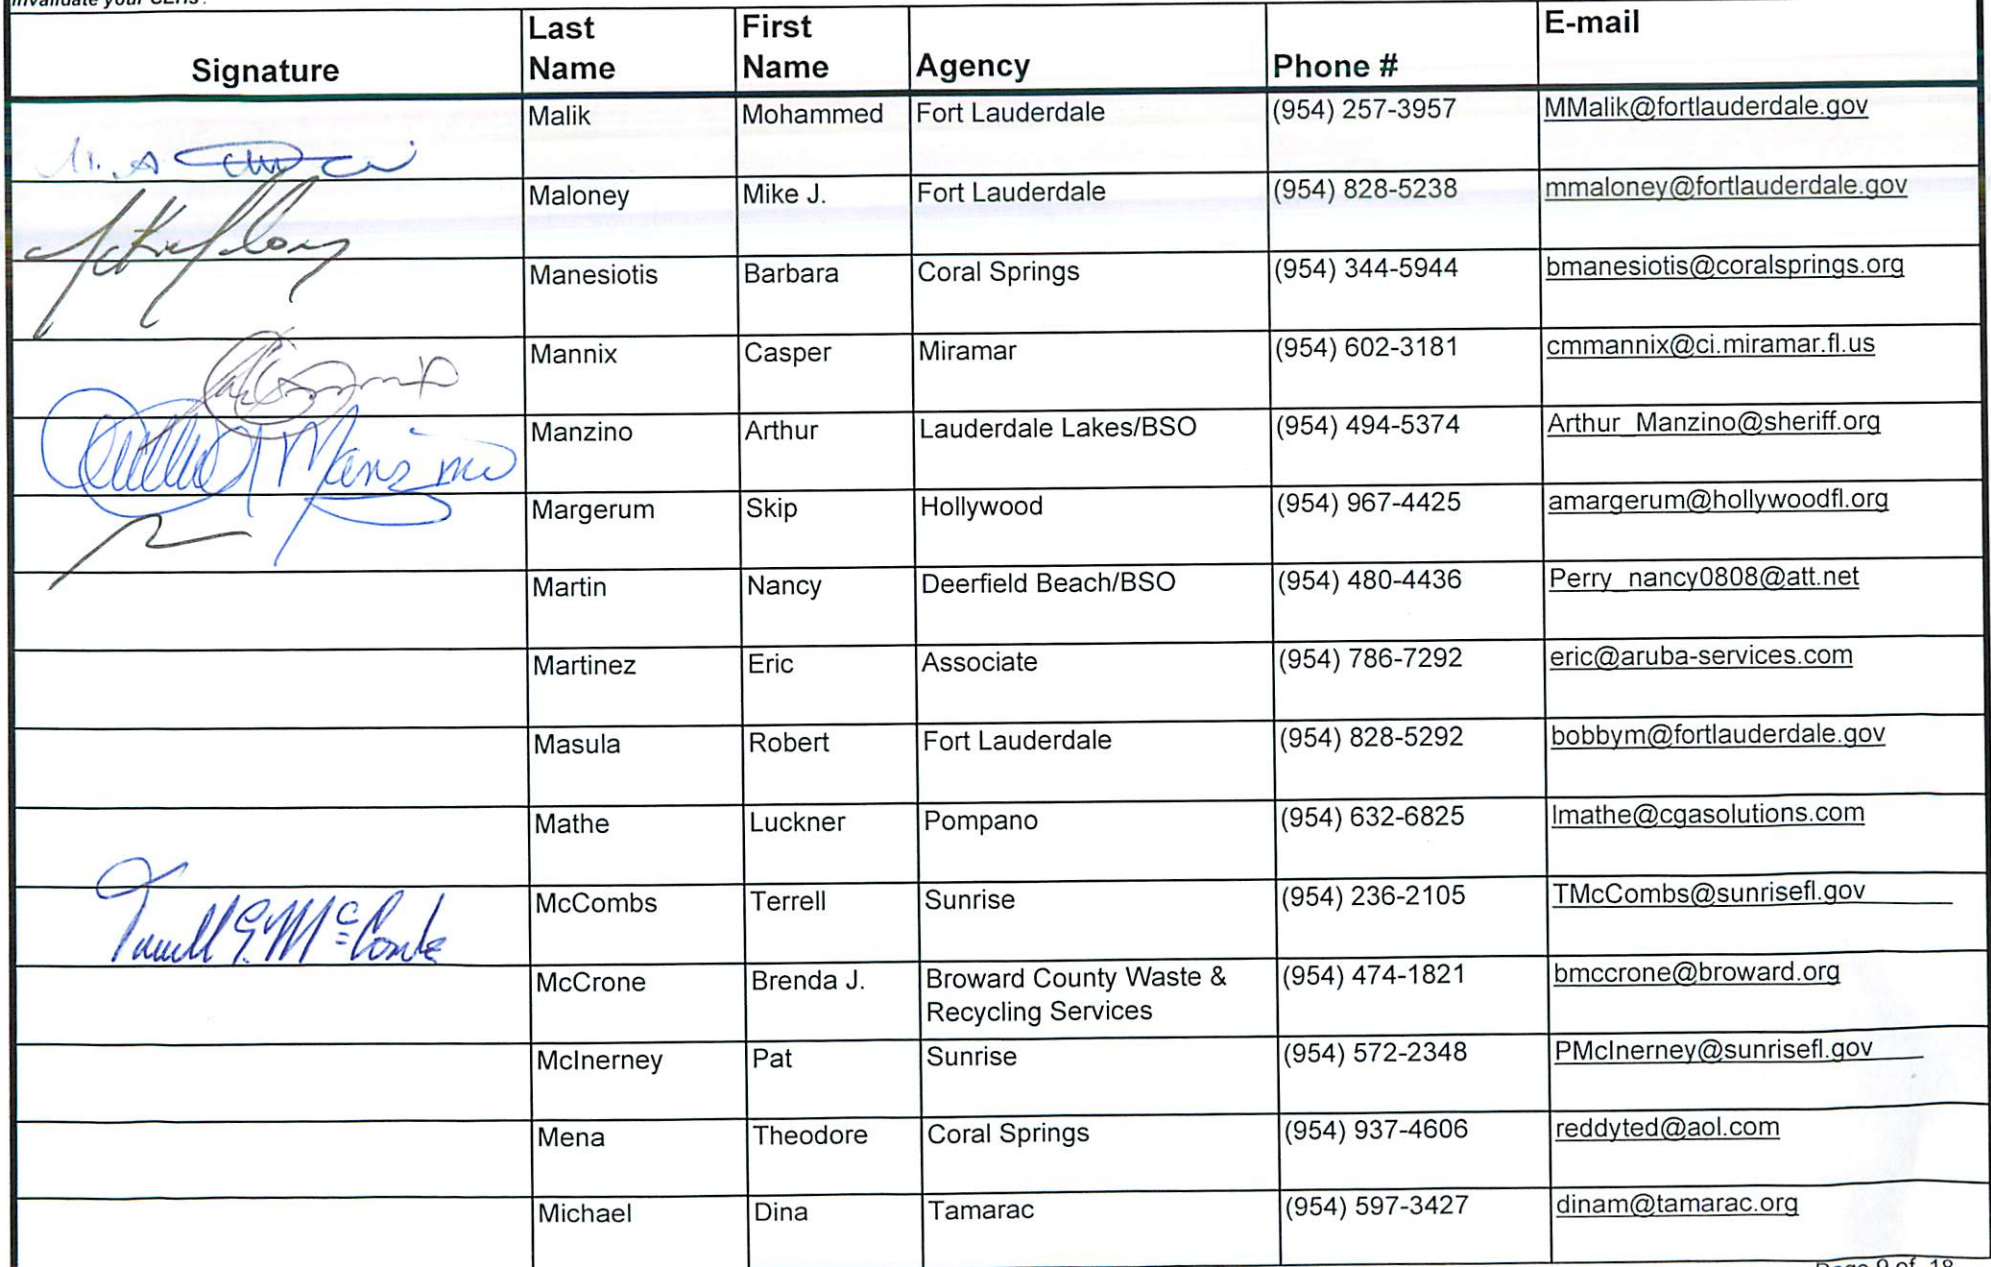 invalidate your CEHs.
Signature Last Name First Name Agency Phone # E-mail
Malik Mohammed Fort Lauderdale (954) 257-3957 MMalik@fortlauderdale.gov
Maloney Mike J. Fort Lauderdale (954) 828-5238 mmaloney@fortlauderdale.gov
Manesiotis Barbara Coral Springs (954) 344-5944 bmanesiotis@coralsprings.org
Mannix Casper Miramar (954) 602-3181 cmmannix@ci.miramar.fl.us
Arthur Manzino Manzino Arthur Lauderdale Lakes/BSO (954) 494-5374 Arthur_Manzino@sheriff.org
Margerum Skip Hollywood (954) 967-4425 amargerum@hollywoodfl.org
Martin Nancy Deerfield Beach/BSO (954) 480-4436 Perry_nancy0808@att.net
Martinez Eric Associate (954) 786-7292 eric@aruba-services.com
Masula Robert Fort Lauderdale (954) 828-5292 bobbym@fortlauderdale.gov
Mathe Luckner Pompano (954) 632-6825 lmathe@cgasolutions.com
Terrell E. McCombs McCombs Terrell Sunrise (954) 236-2105 TMcCombs@sunrisefl.gov
McCrone Brenda J. Broward County Waste & (954) 474-1821 bmccrone@broward.org
Recycling Services
McInerney Pat Sunrise (954) 572-2348 PMcInerney@sunrisefl.gov
Mena Theodore Coral Springs (954) 937-4606 reddyted@aol.com
Michael Dina Tamarac (954) 597-3427 dinam@tamarac.org
Page 9 of 18